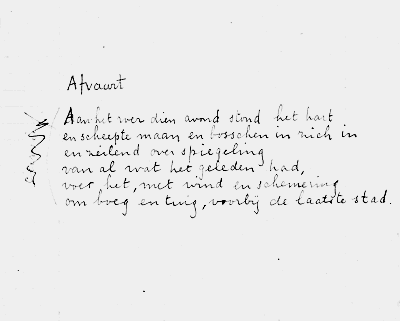 Afvaart
Aan het roer dien avond stond het hart
en scheepte maan en bosschen in zich in
en zeilend over spiegeling
van al wat het geleden had,
voer het, met wind en schemering
om boeg en tuig, voorbij de laatste stad.